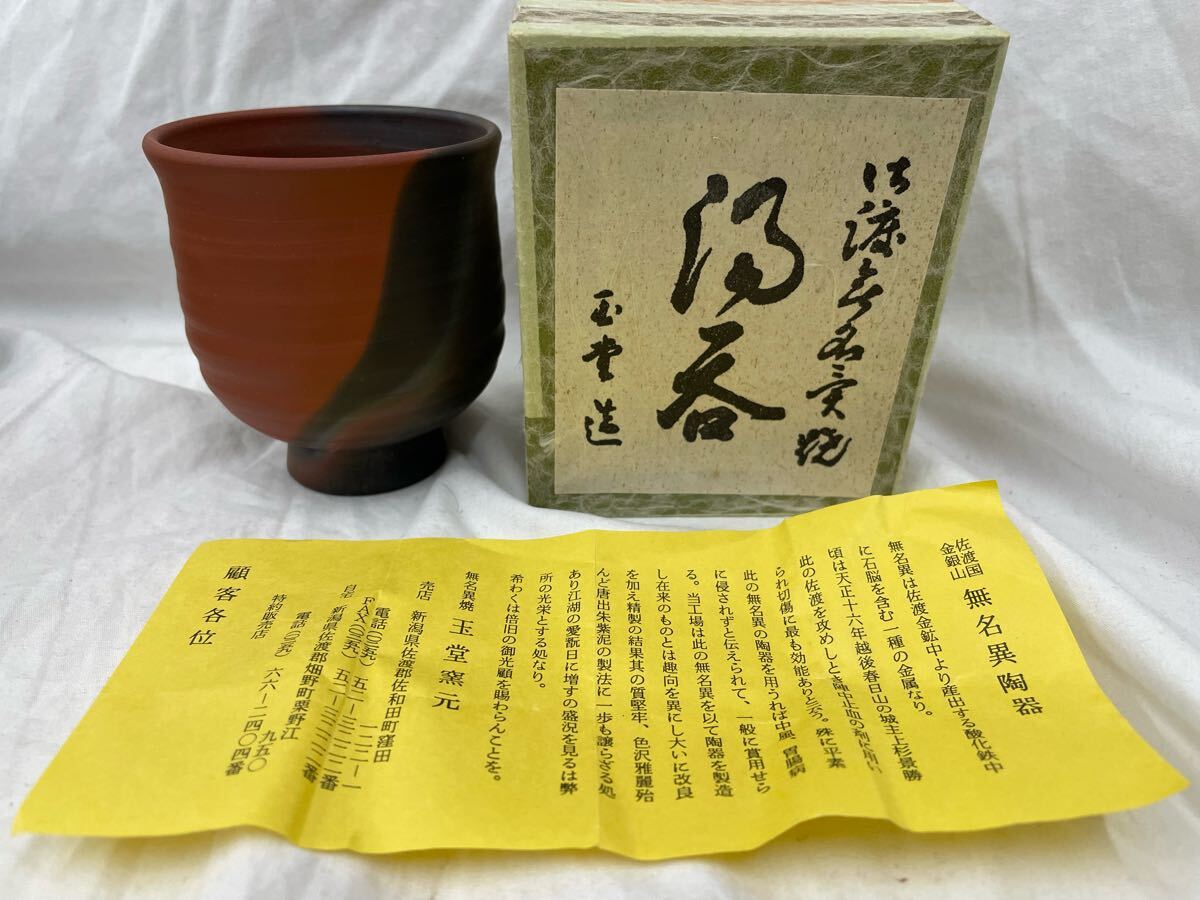 佐渡無名異焼
湯呑
玉堂造
佐渡国
金銀山
無名異陶器
無名異は佐渡金鉱中より産出する酸化鉄中
に石脳を含む一種の金属なり。
頃は天正十六年越後春日山の城主上杉景勝
此の佐渡を攻めしとき陣中止血の剤に用い
られ切傷に最も効能ありと云う。殊に平素
此の無名異の陶器を用うれば中風 胃腸病
に侵されずと伝えられて、一般に賞用せら
る。当工場は此の無名異を以て陶器を製造
し在来のものとは趣向を異にし大いに改良
を加え精製の結果其の質堅牢、色沢雅麗殆
んど唐出朱紫泥の製法に一歩も譲らざる処
あり江湖の愛翫日に増すの盛況を見るは弊
所の光栄とする処なり。
希わくは倍旧の御光顧を賜わらんことを。
無名異焼 玉堂窯元
売店 新潟県佐渡郡佐和田町窪田
自宅 新潟県佐渡郡畑野町栗野江
特約販売店 六六―二四〇四番
顧客各位